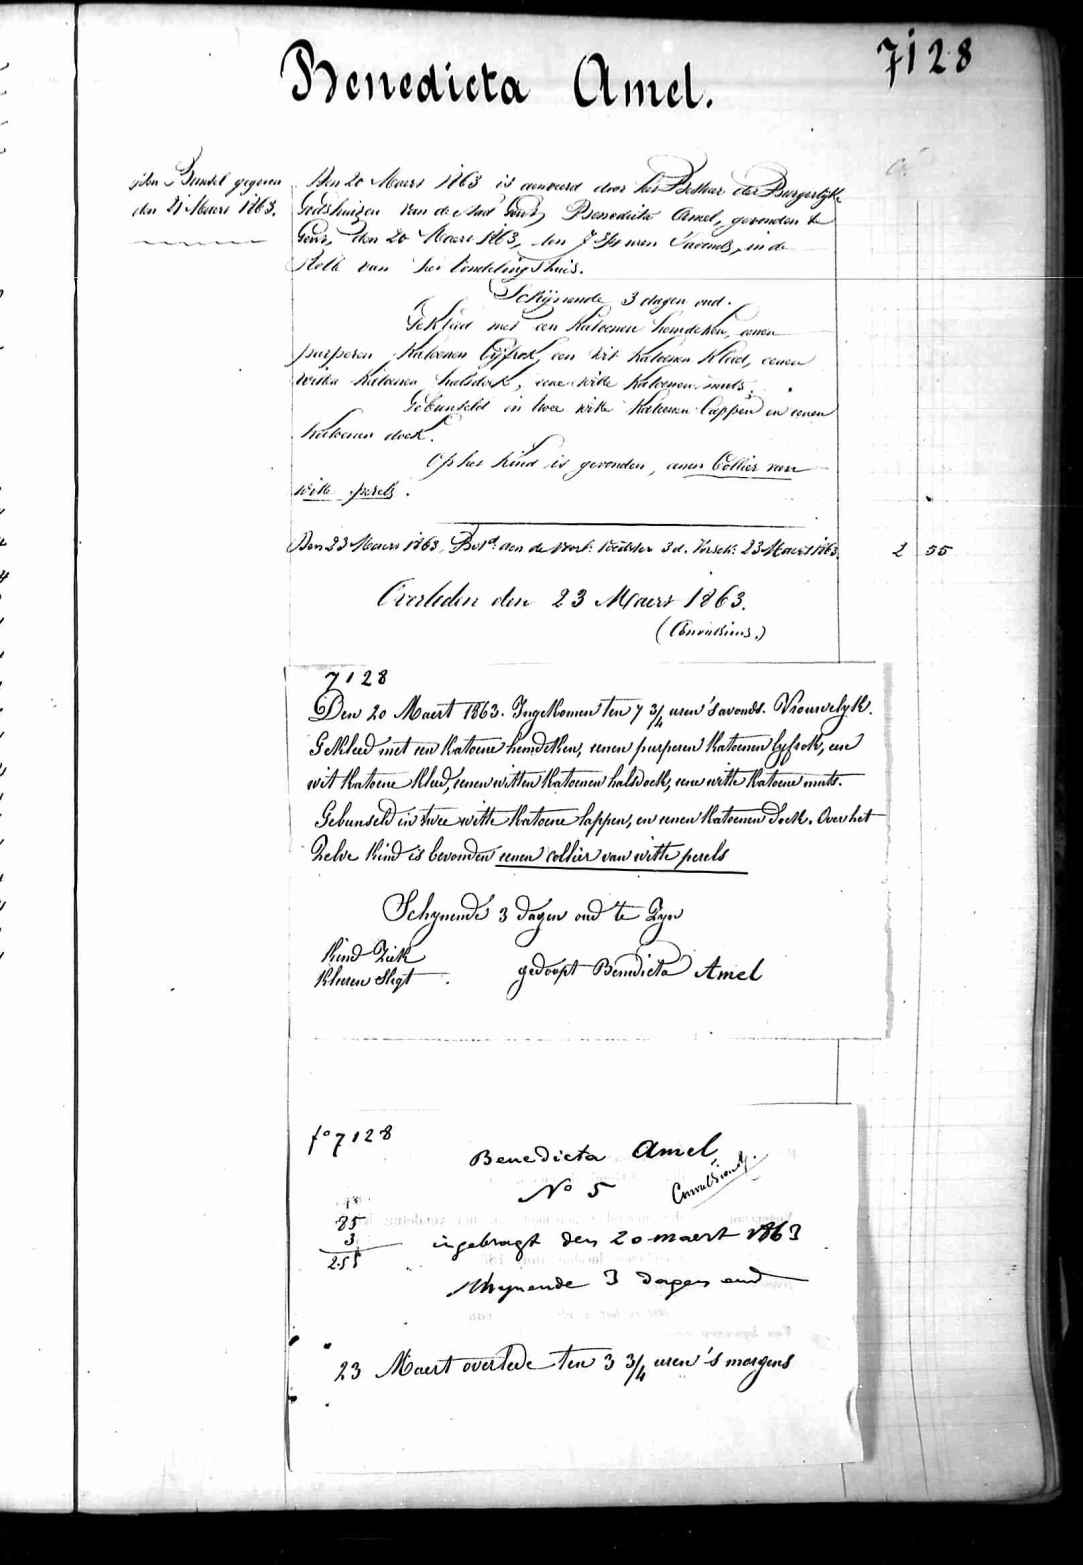 7128
Benedicta Amel.
Bundel gegeven
den 21 Maart 1863.
Den 20 Maart 1863 is aanveerd door het Bestuer der Burgerlijke
Godshuizen van de stad Gent, Benedicta Amel, gevonden te
Gent, den 20 Maart 1863, ten 7 3/4 uren 's avonds, in de
Rolle van het Vondelingshuis.
Schijnende 3 dagen oud.
Gekleed met een katoenen hemdeken, eenen
purperen katoenen lyfrok, een wit katoenen kleed, eenen
witten katoenen halsdoek, eene witte katoenen muts.
Gebunseld in twee witte katoenen lappen en eenen
katoenen doek.
Op het kind is gevonden, eenen Collier van
witte perels.
Den 23 Maart 1863, Bet.d aan de 3 d. 23 Maart 1863.
2 55
Overleden den 23 Maart 1863.
(Convulsions.)
7128
Den 20 Maert 1863. Ingekomen ten 7 3/4 uren 's avonds. Vrouwelyk.
Gekleed met een katoene hemdeken, eenen purperen katoenen lyfrok, een
wit katoene kleed, eenen witten katoenen halsdoek, eene witte katoene muts.
Gebunseld in twee witte katoene lappen, en eenen katoenen doek. Over het
Zelve kind is bevonden eenen collier van witte perels
Schynende 3 dagen oud te Zyn
Kind Ziek
Kleeren Slegt
gedoopt Benedicta Amel
fo 7128
Benedicta Amel
No 5
Convulsions.
85
3
255
ingebragt den 20 maert 1863
schynende 3 dagen oud
23 Maert overlede ten 3 3/4 uren 's morgens